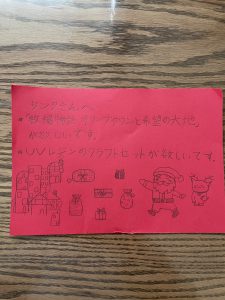 サンタさんへ
*「牧場物語 オリーブタウンと希望の大地」
が欲しいです。
*UVレジンのクラフトセットが欲しいです。